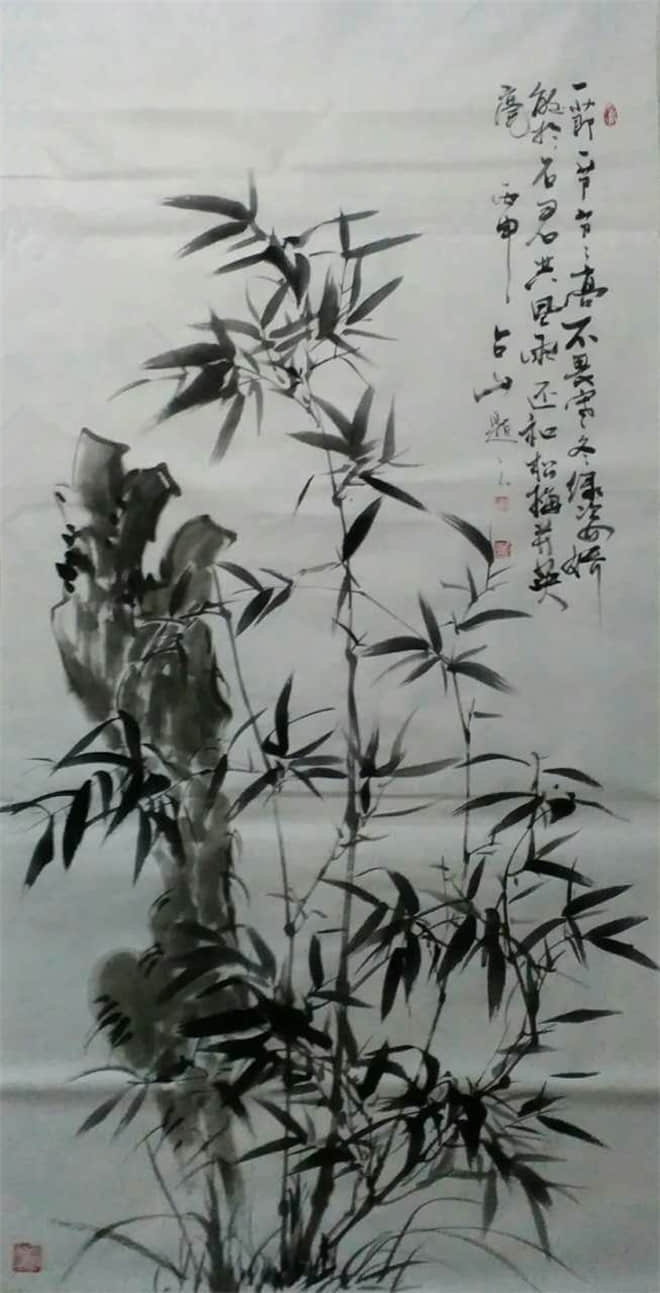 一節一节节〻高不畏寒冬绿姿娇
敢於石君共風雨还和松梅并英
豪 丙申 占山 题